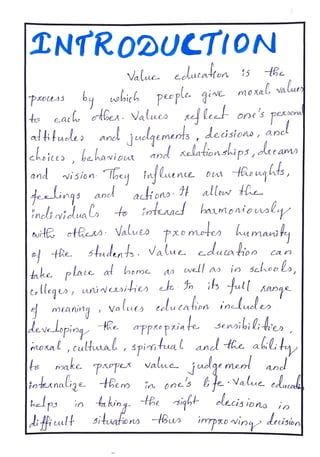 INTRODUCTION
Value education is the
process by which people give moral values
to each other. Values reflect one's personal
attitudes and judgements, decisions, and
choices, behaviour and relationships, dreams
and vision. They influence our thoughts,
feelings and actions. It allow the
individuals to interact harmoniously
with others. Values promotes humanity
of the students. Value education can
take place at home as well as in schools,
colleges, universities etc. In its full range
of meaning, values education includes
developing the appropriate sensibilities,
moral, cultural, spiritual and the ability
to make proper value judgement and
internalize them in one's life. Value education
helps in taking the right decisions in
difficult situations thus improving decision